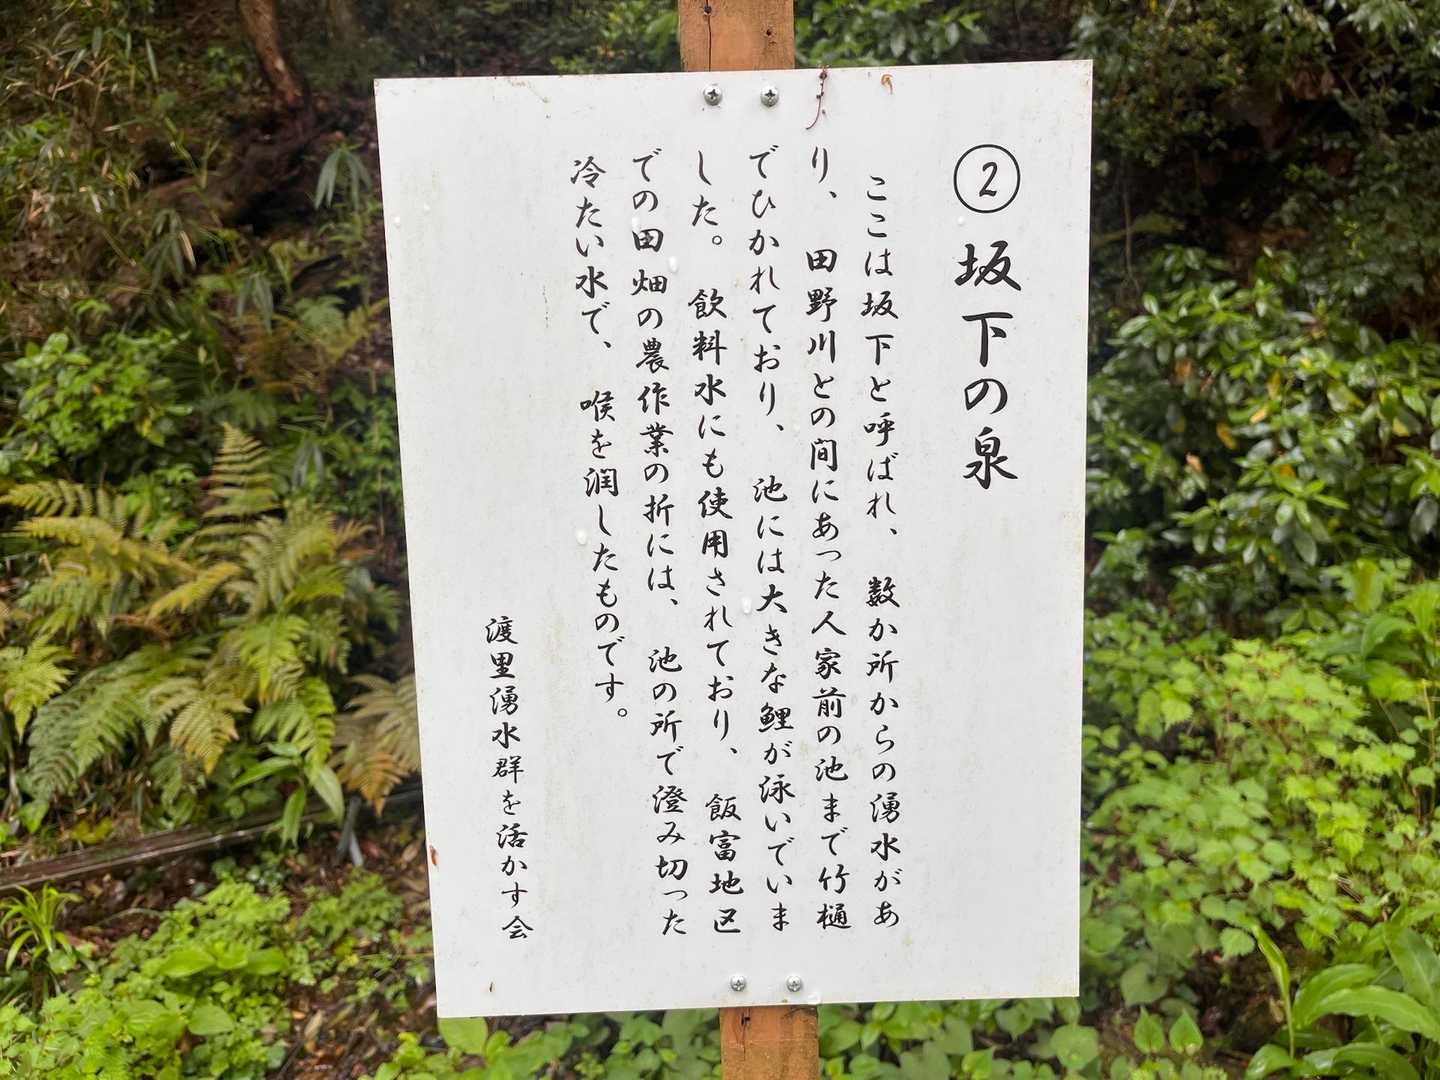 ② 坂下の泉
ここは坂下と呼ばれ、数か所からの湧水があ
り、田野川との間にあった人家前の池まで竹樋
でひかれており、池には大きな鯉が泳いでいま
した。飲料水にも使用されており、飯富地区
での田畑の農作業の折には、池の所で澄み切った
冷たい水で、喉を潤したものです。
渡里湧水群を活かす会